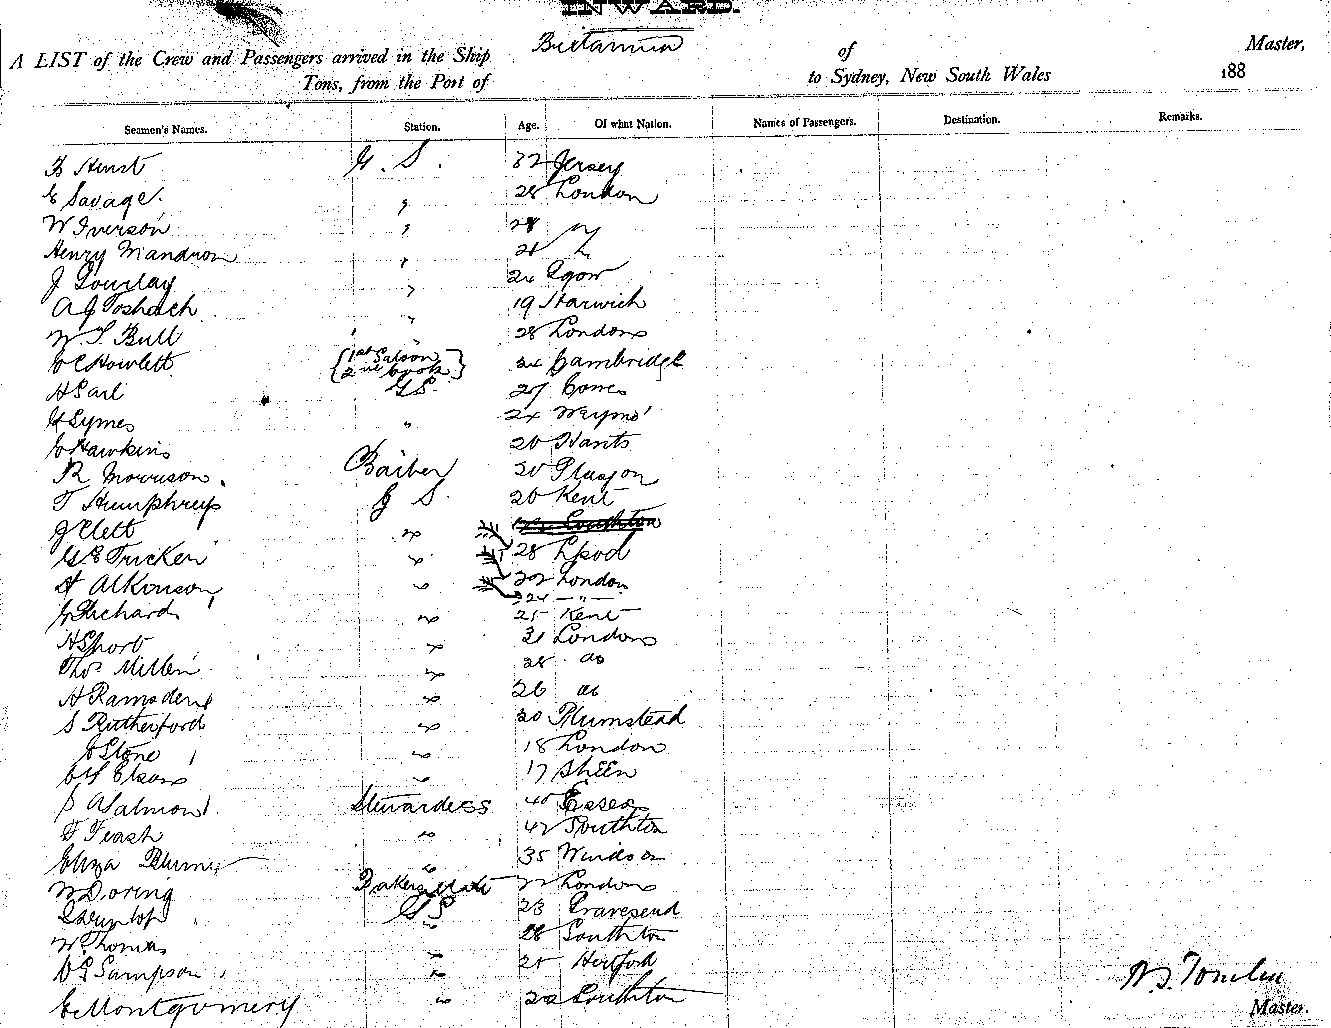 INWARD.
A LIST of the Crew and Passengers arrived in the Ship Britannia of Master,
Tons, from the Port of to Sydney, New South Wales 188
Seamen's Names. Station. Age. Of what Nation. Names of Passengers. Destination. Remarks.
Hurst G. S. 32 Jersey
E Savage. " 28 London
W Iverson " 28 "
Henry Mandron " 28 "
J Gourlay "
A J Toshach " 19 Harwich
W. S. Bull " 28 London
Howlett {1st Saloon 2nd Cook} 24 Cambridge
H Earl G S. 27 Cowes
G Symes " 24 Weymo'
Hawkins 20 Hants
R Morrison. Barber 30 Glasgow
T Humphreys G S. 20 Kent
J Clett "
G E Tricker " 28 Lpool
A Atkinson " 22 London
Richard " 25 Kent
H Short " 31 London
Thos Miller " 28 do
H Ramsden " 26 do
S Rutherford " 20 Plumstead
Stone " 18 London
" 17 Sheen
A Salmon Stewardess 40 Essex
F Feash " 42 Southton
Eliza Blum " 35 Windsor
W Doring Bakers Mate 22 London
Dunlop G S 23 Gravesend
W. Thomas " 28 Southton
Sampson " 25 Hertford
E Montgomery " 22 Southton
Master.